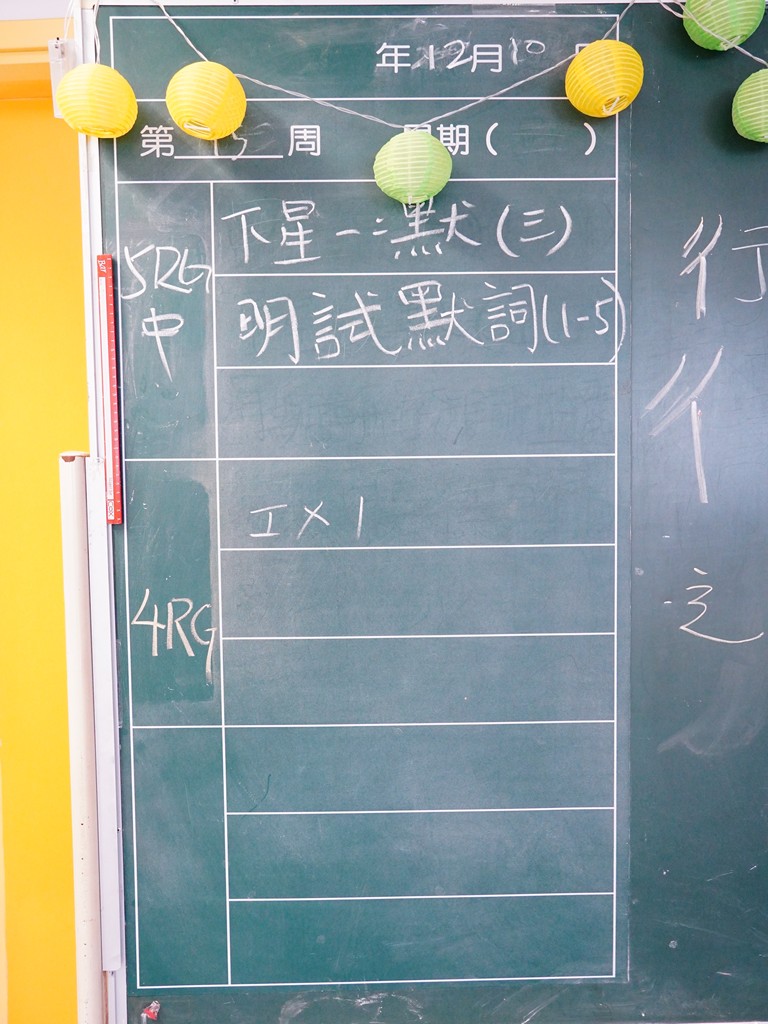 年12月10
第 15 周 星期( )
5RG
中
下星一:默(三)
明試默詞(1-5)
工×1
4RG
行
彳